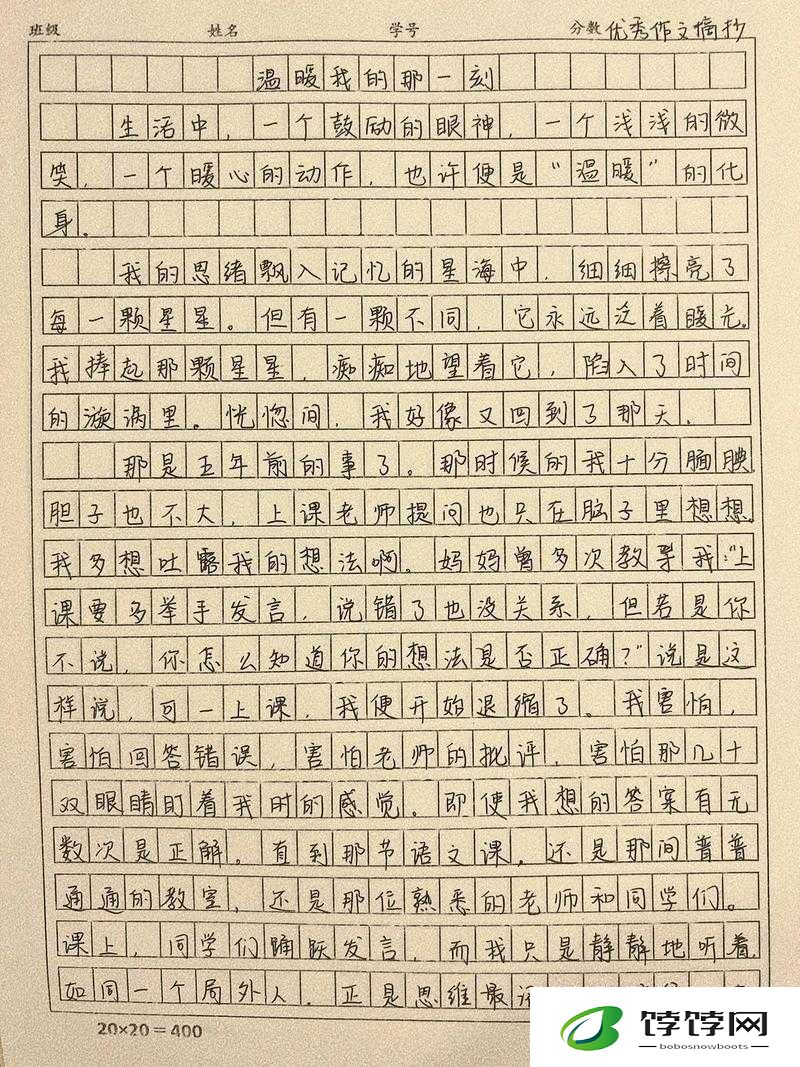 班级 姓名 学号 分数 优秀作文摘抄
温暖我的那一刻
生活中，一个鼓励的眼神，一个浅浅的微
笑，一个暖心的动作，也许便是“温暖”的化
身。
我的思绪飘入记忆的星海中，细细擦亮了
每一颗星星。但有一颗不同，它永远泛着暖光。
我捧起那颗星星，痴痴地望着它，陷入了时间
的漩涡里。恍惚间，我好像又回到了那天。
那是五年前的事了。那时候的我十分腼腆
胆子也不大，上课老师提问也只在脑子里想想。
我多想吐露我的想法啊。妈妈曾多次教导我：“上
课要多举手发言，说错了也没关系，但若是你
不说，你怎么知道你的想法是否正确？”说是这
样说，可一上课，我便开始退缩了。我害怕，
害怕回答错误，害怕老师的批评，害怕那几十
双眼睛盯着我时的感觉。即使我想的答案有无
数次是正解。直到那节语文课。还是那间普普
通通的教室，还是那位熟悉的老师和同学们。
课上，同学们踊跃发言，而我只是静静地听着，
如同一个局外人。正是思维最
20×20=400
饽饽网
bobosnowboots